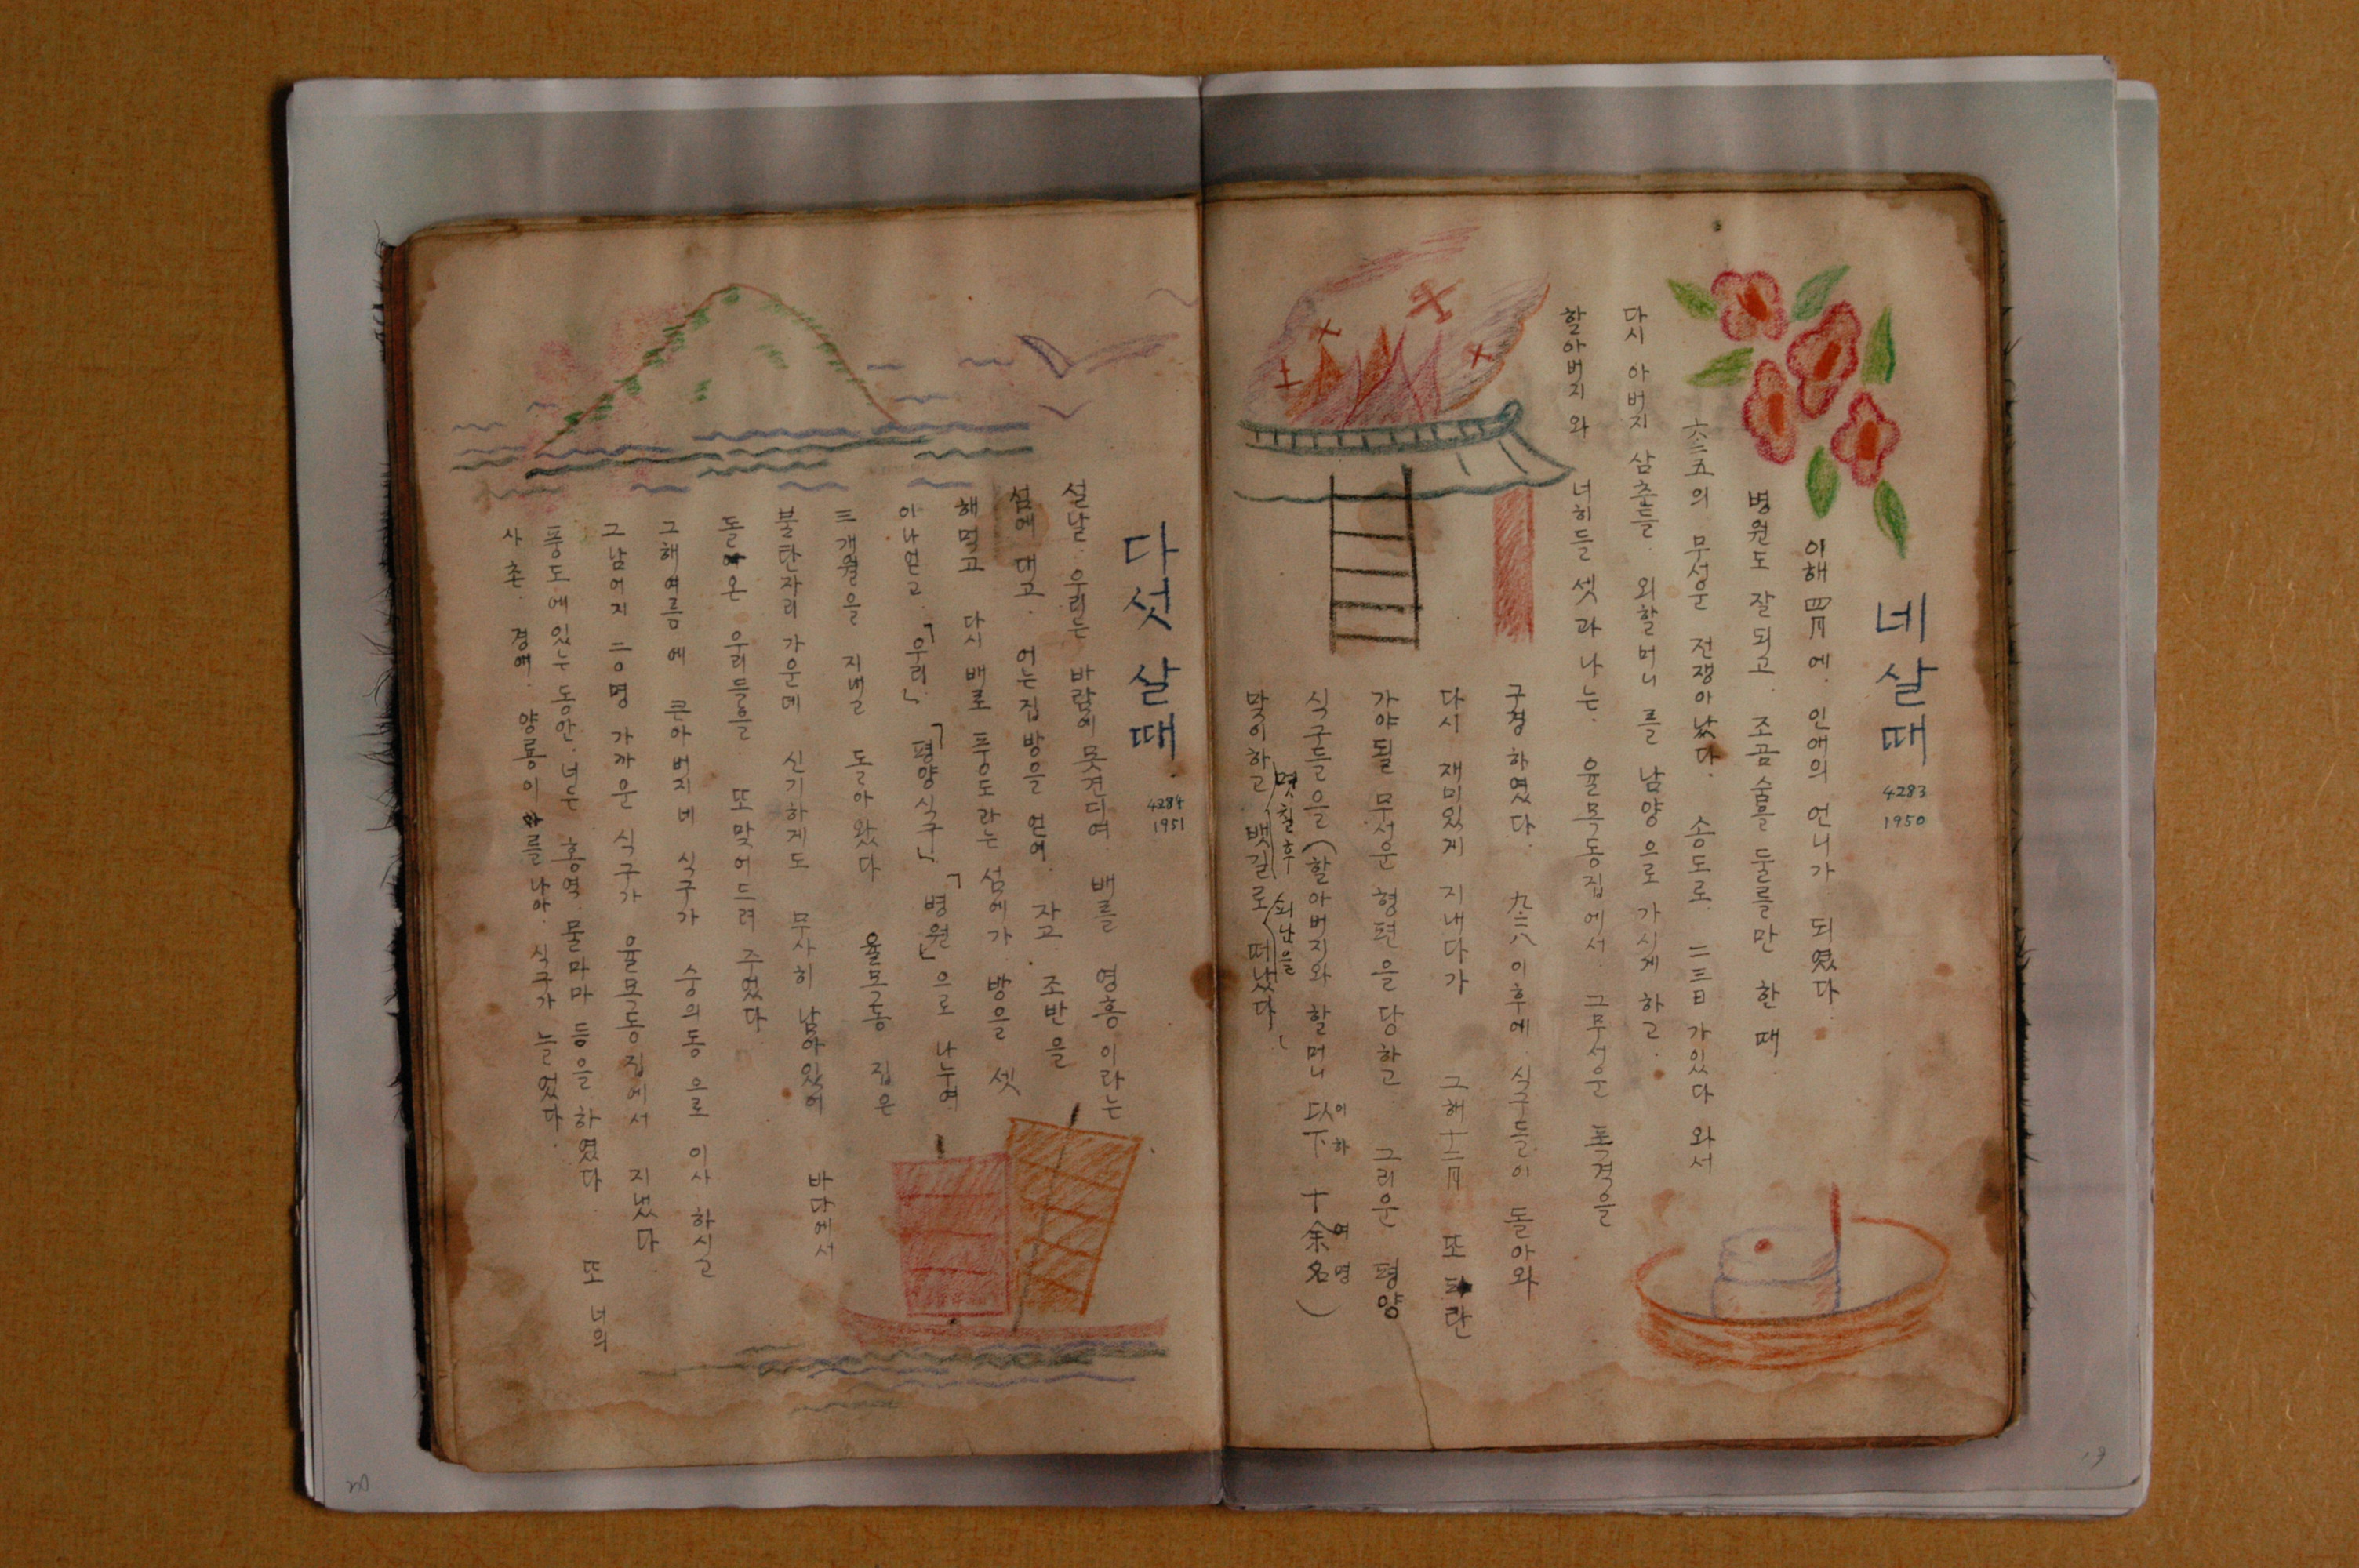 네 살 때
4283
1950
이해 四月에. 인애의 언니가 되였다.
병원도 잘되고. 조곰 숨을 둘를만 한 때.
六二五의 무서운 전쟁아났다. 송도로. 二三日 가있다 와서
다시 아버지 삼춘들. 외할버니를 남양으로 가시게 하고.
할아버지와 너히들 셋과 나는. 율목동집에서. 그무서운 폭격을
구경하였다. 九二八 이후에 식구들이 돌아와
다시 재미있게 지내다가 그해 十二月. 또 피란
가야될 무서운 형편을 당하고. 그리운 평양
식구들을 (할아버지와 할머니 以下 十余名)
이하 여명
맞이하고 몇칠후 뱃길로 외남을 떠났다.
다섯 살 때.
4284
1951
설날. 우리는 바람에 못견디여. 배를 영흥이라는
섬에 대고. 어는집방을 얻어. 자고. 조반을
해먹고 다시 배로 풍도라는 섬에가 방을 셋
이나얻고.「우리」.「평양식구」.「병원」으로 나누여
三개월을 지낼 돌아왔다 율목동 집은
불탄자리 가운데 신기하게도 무사히 남아있어 바다에서
돌아온 우리들을. 또 맞어드려 주었다.
그해여름에 큰아버지네 식구가 숭의동으로 이사하시고
그남어지 二○명 가까운 식구가 율목동집에서 지냈다.
풍도에있는 동안. 너는 홍역. 물마마 등을 하였다. 또 너의
사촌. 경애. 양룡이를 나아. 식구가 늘었다.
20
19